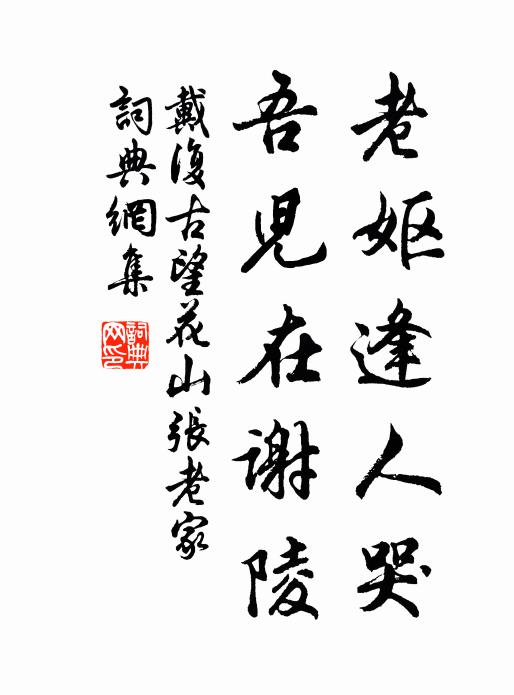 老妪逢人哭
吾児在谢陵
戴復古望花山張老家
詞典網集
詞典网印